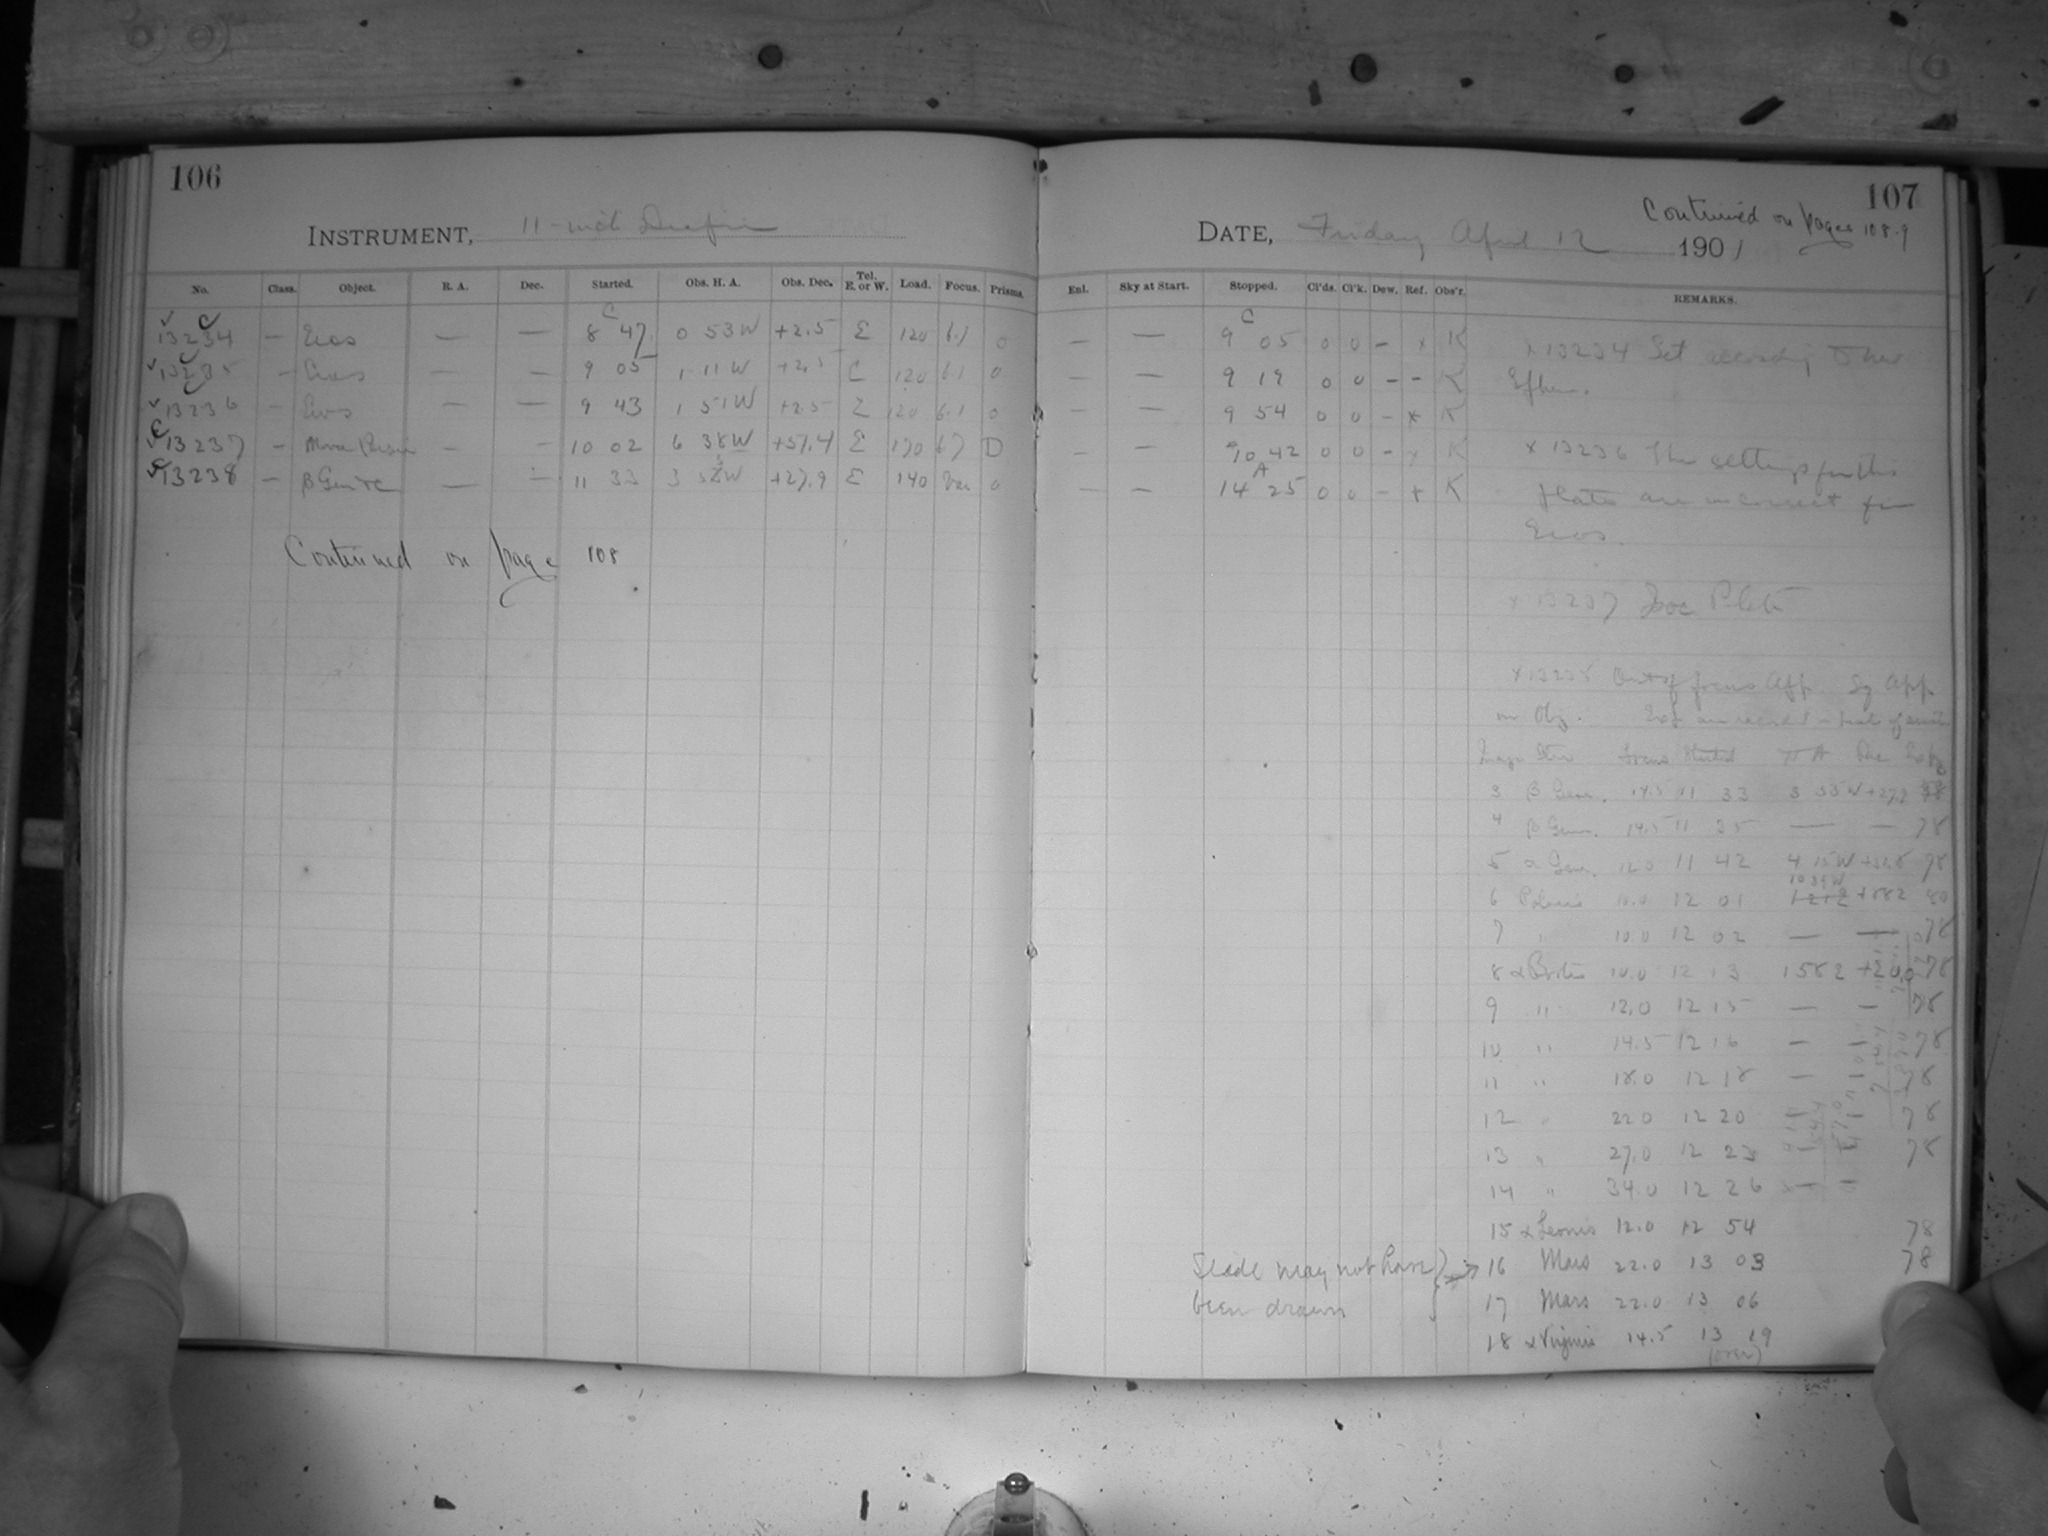 106
INSTRUMENT, 11-inch Draper
No. Class. Object. R. A. Dec. Started. Obs. H. A. Obs. Dec. Tel. E. or W. Load. Focus. Prisms
13234 — Eros — — 8 47 0 53 W +2.5 E 120 6.1 0
13235 — Eros — — 9 05 1 11 W +2.5 E 120 6.1 0
13236 — Eros — — 9 43 1 51 W +2.5 E 120 6.1 0
13237 — Nova Persei — — 10 02 6 38 W +57.4 E 170 6.7 D
13238 — β Gem &c — — 11 33 3 W +27.9 E 140 Var 0
Continued on page 108
107
Continued on pages 108.9
DATE, Friday April 12 1901
Enl. Sky at Start. Stopped. Cl'ds. Cl'k. Dew. Ref. Obs'r. REMARKS.
— — 9 05 0 0 - x K
— — 9 19 0 0 - - K
— — 9 54 0 0 - x K
— — 10 42 0 0 - x K
— — 14 25 0 0 - x K
x 13234 Set according to new
Ephem.
x 13236 The settings for this
plate are incorrect for
Eros.
x 13237 Iso Plate
x 13238 Out of focus App. Sq App.
on Obj.
Image Star Focus Started H A Dec
3 β Gem. 14.5 11 33 3 35 W +27.9
4 β Gem. 14.5 11 35 — — 78
5 α Gem. 12.0 11 42 4 15 W 78
6 Polaris 10.0 12 01 10 39 W +88 2 80
7 " 10.0 12 02 — — 78
8 α Bootis 10.0 12 13 78
9 " 12.0 12 15 — — 78
10 " 14.5 12 16 — — 78
11 " 18.0 12 18 — — 78
12 " 22.0 12 20 78
13 " 27.0 12 23 78
14 " 34.0 12 26 — —
15 α Leonis 12.0 12 54 78
Slide may not have 16 Mars 22.0 13 03 78
been drawn 17 Mars 22.0 13 06
18 α Virginis 14.5 13 19
(over)